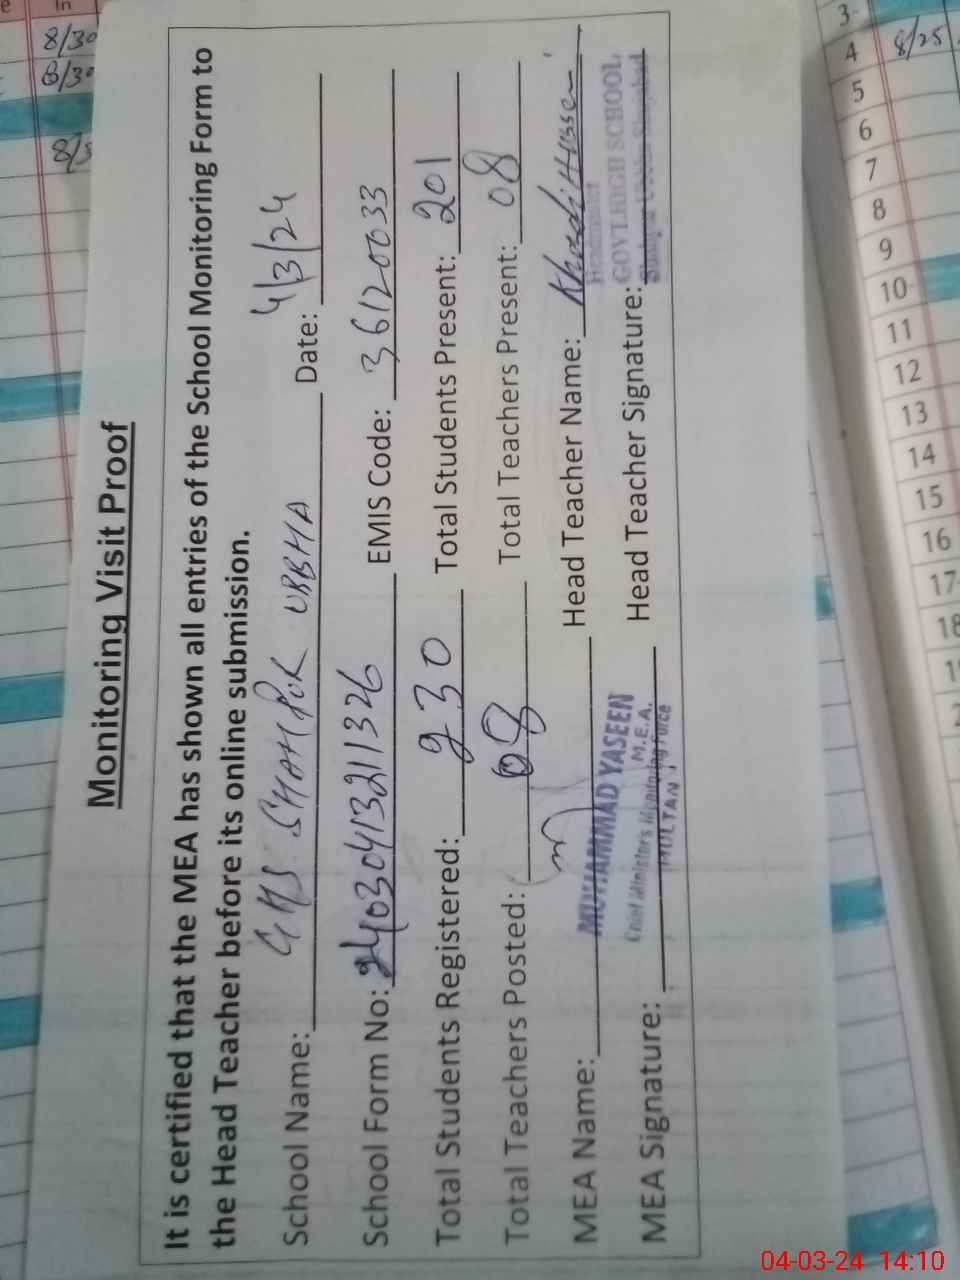 Monitoring Visit Proof
It is certified that the MEA has shown all entries of the School Monitoring Form to
the Head Teacher before its online submission.
School Name: GHS. SHAHPUR UBBHA Date: 4/3/24
School Form No: EMIS Code: 36120033
Total Students Registered: 230 Total Students Present: 201
Total Teachers Posted: 08 Total Teachers Present: 08
MEA Name: Head Teacher Name:
MUHAMMAD YASEEN
M.E.A.
Chief Minister's Monitoring Force
MULTAN
Headmaster
GOVT.HIGH SCHOOL
MEA Signature: Head Teacher Signature:
In
8/30
8/30
3
4 8/25
5
6
7
8
9
10
11
12
13
14
15
16
17
18
04-03-24 14:10